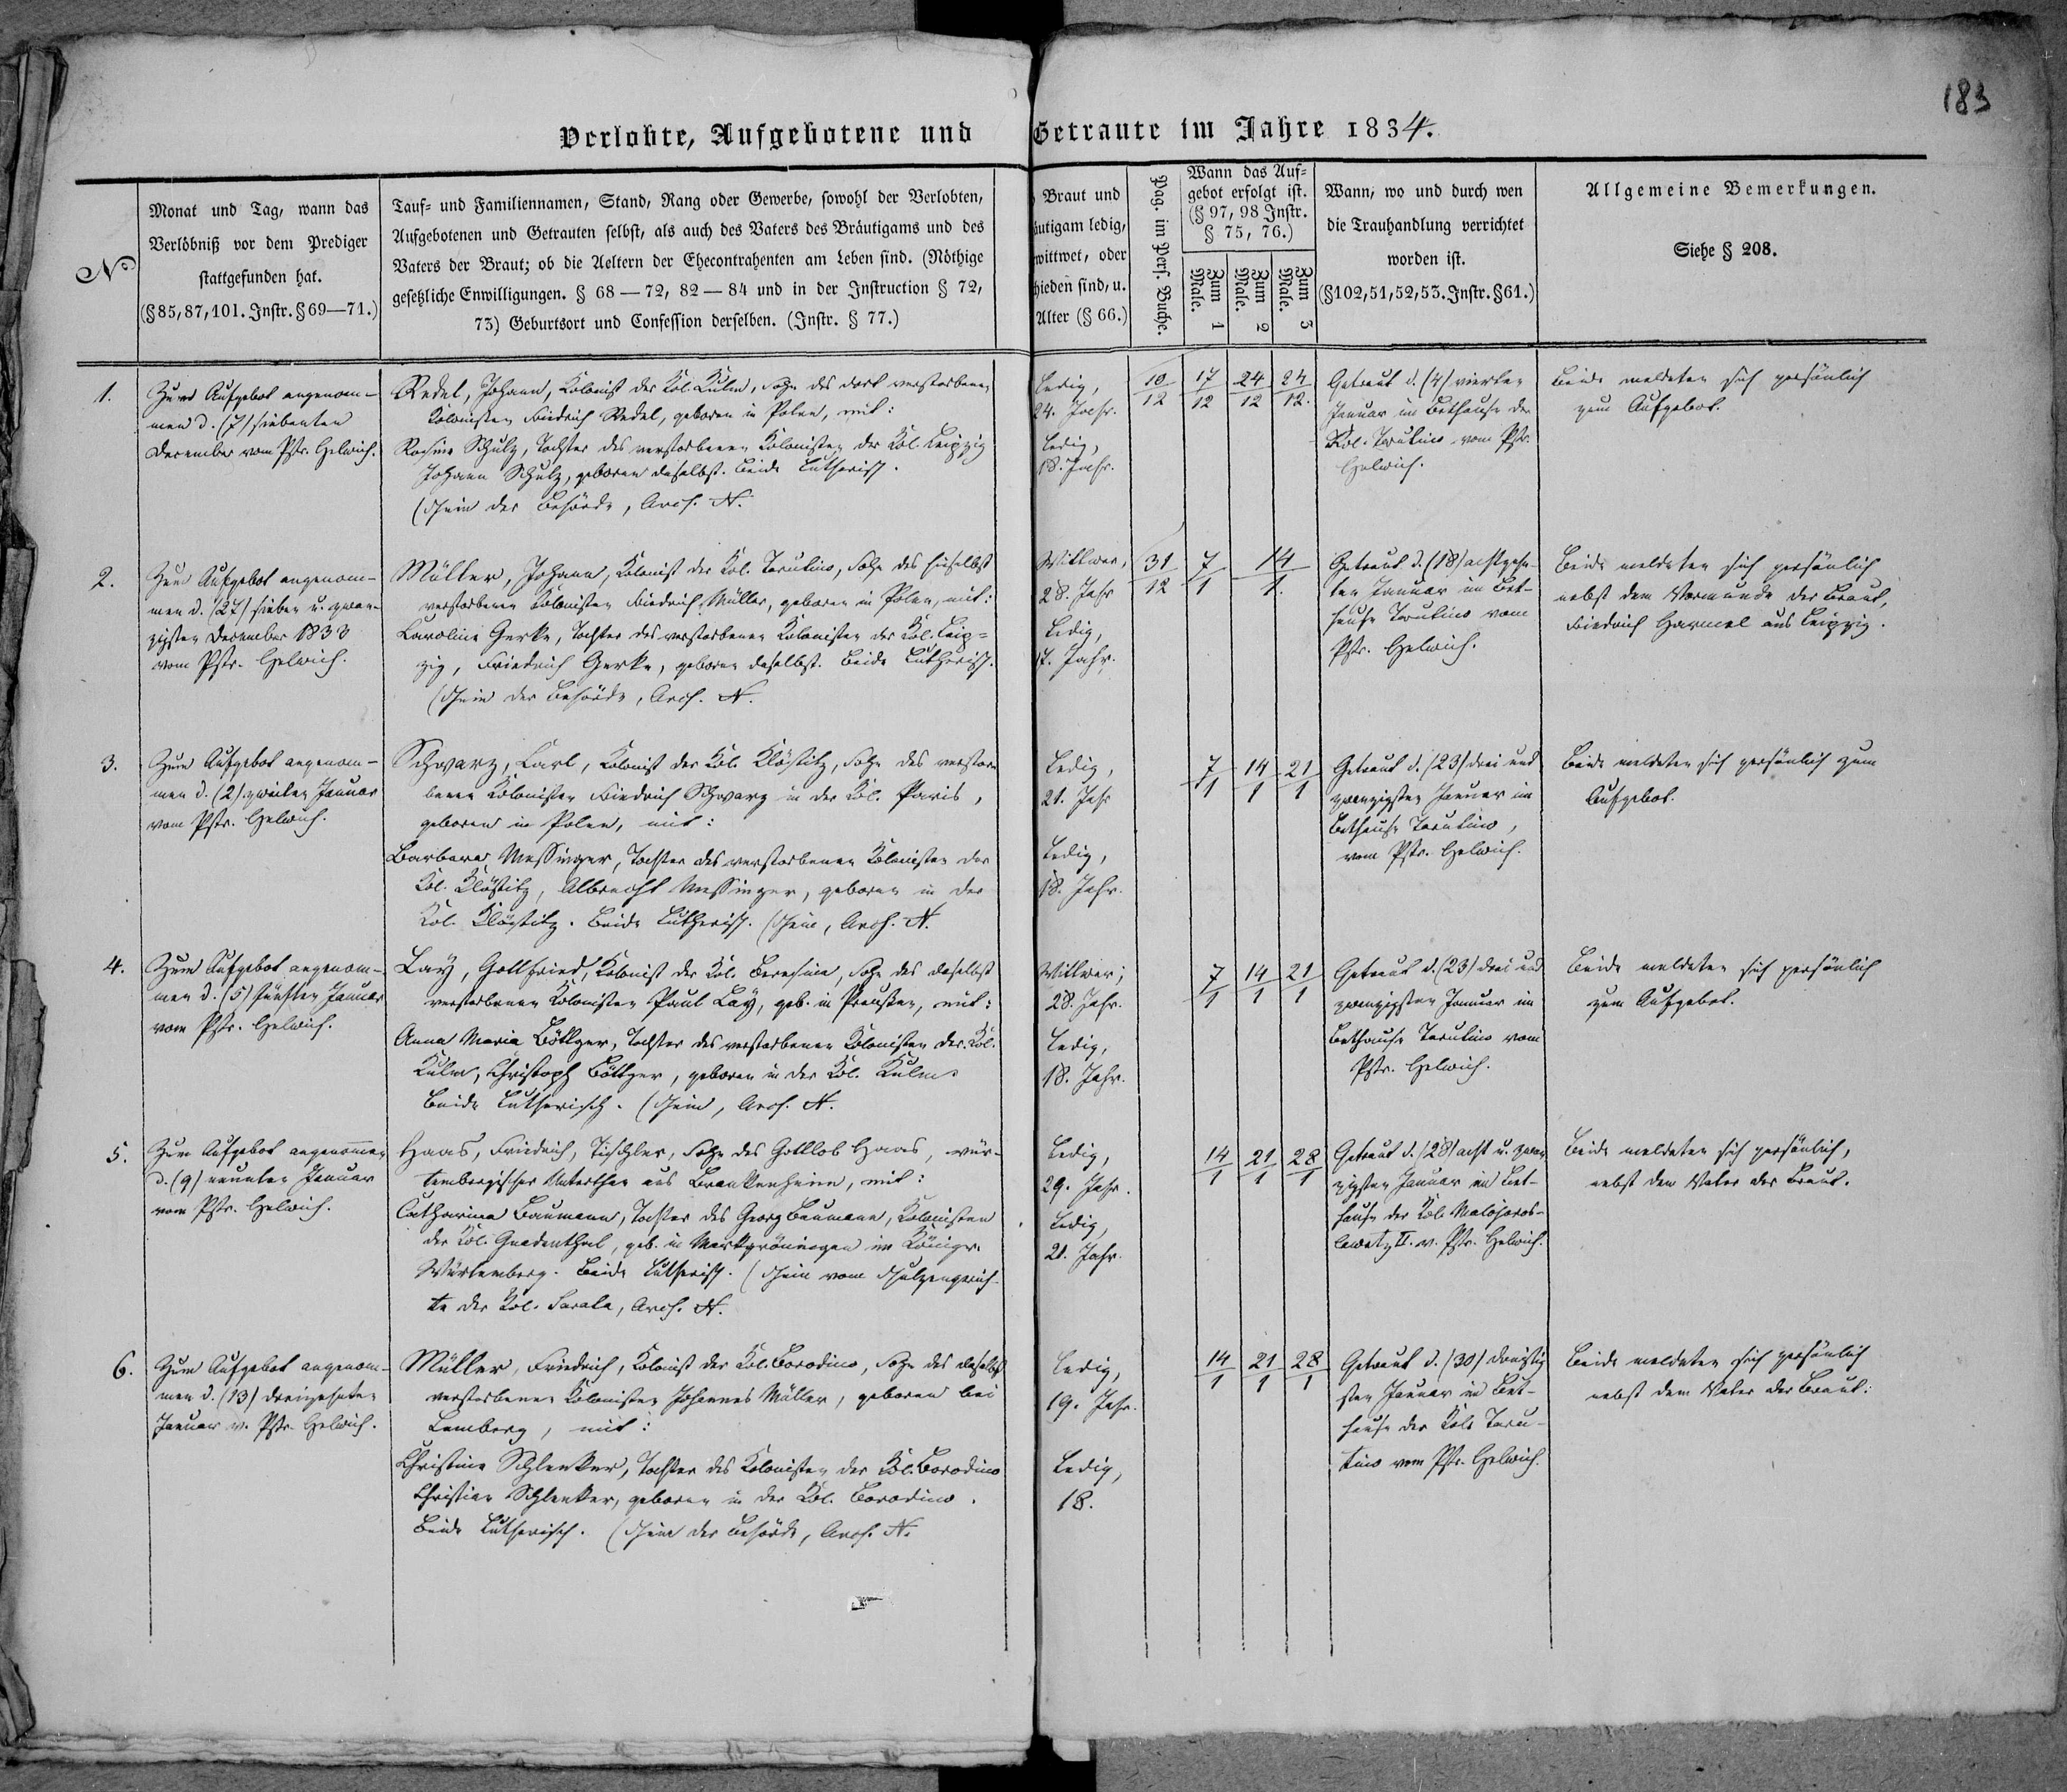 183
Verlobte, Aufgebotene und Getraute im Jahre 1834.
No
Monat und Tag, wann das
Verlöbniß vor dem Prediger
stattgefunden hat.
(§ 85, 87, 101. Instr. § 69—71.)
Tauf- und Familiennamen, Stand, Rang oder Gewerbe, sowohl der Verlobten,
Aufgebotenen und Getrauten selbst, als auch des Vaters des Bräutigams und des
Vaters der Braut; ob die Aeltern der Ehecontrahenten am Leben sind. (Nöthige
gesetzliche Enwilligungen. § 68 — 72, 82 — 84 und in der Instruction § 72,
73) Geburtsort und Confession derselben. (Instr. § 77.)
Braut und
äutigam ledig,
wittwet, oder
hieden sind, u.
Alter (§ 66.)
Pag. im Pers. Buche.
Wann das Auf-
gebot erfolgt ist.
(§ 97, 98 Instr.
§ 75, 76.)
Zum 1 Male.
Zum 2 Male.
Zum 3 Male.
Wann, wo und durch wen
die Trauhandlung verrichtet
worden ist.
(§102,51,52,53.Instr.§61.)
Allgemeine Bemerkungen.
Siehe § 208.
1.
Zum Aufgebot angenom-
men d. (7) siebenten
December vom Pstr. Helwich.
Redel, Johann, Kolonist der Kol. Kulm, Sohn des dort verstorbenen
Kolonisten Friedrich Redel, geboren in Polen, mit:
Rosine Schulz, Tochter des verstorbenen Kolonisten der Kol. Leipzig
Johann Schulz, geboren daselbst. Beide Lutherisch.
(Schein der Behörde, Arch. N.
Ledig,
24. Jahr.
Ledig,
18. Jahr.
10/12 17/12 24/12 24/12.
Getraut d. (4) vierten
Januar im Bethause der
Kol. Tarutino vom Pstr.
Helwich.
Beide meldeten sich persönlich
zum Aufgebot.
2.
Zum Aufgebot angenom-
men d. (27) sieben u. zwan-
zigsten December 1833
vom Pstr. Helwich.
Müller, Johann, Kolonist der Kol. Tarutino, Sohn des hieselbst
verstorbenen Kolonisten Friedrich Müller, geboren in Polen, mit:
Caroline Gerke, Tochter des verstorbenen Kolonisten der Kol. Leip-
zig, Friedrich Gerke, geboren daselbst. Beide Lutherisch.
(Schein der Behörde, Arch. N.
Wittwer,
28. Jahr
Ledig,
17. Jahr.
31/12 7/1 14/1.
Getraut d. (18) achtzehn-
ten Januar im Bet-
hause Tarutino vom
Pstr. Helwich.
Beide meldeten sich persönlich
nebst dem Vormunde der Braut,
Friedrich Harmel aus Leipzig.
3.
Zum Aufgebot angenom-
men d. (2) zweiten Januar
vom Pstr. Helwich.
Schwarz, Carl, Kolonist der Kol. Klöstitz, Sohn des verstor-
benen Kolonisten Friedrich Schwarz in der Kol. Paris,
geboren in Polen, mit:
Barbara Messinger, Tochter des verstorbenen Kolonisten der
Kol. Klöstitz, Albrecht Messinger, geboren in der
Kol. Klöstitz. Beide Lutherisch. (Schein, Arch. N.
Ledig,
21. Jahr
Ledig,
18. Jahr.
7/1 14/1 21/1
Getraut d. (23) drei und
zwanzigsten Januar im
Bethause Tarutino,
vom Pstr. Helwich.
Beide meldeten sich persönlich zum
Aufgebot.
4.
Zum Aufgebot angenom-
men d. (5) fünften Januar
vom Pstr. Helwich.
Lay, Gottfried, Kolonist der Kol. Beresina, Sohn des daselbst
verstorbenen Kolonisten Paul Lay, geb. in Preußen, mit:
Anna Maria Böttger, Tochter des verstorbenen Kolonisten der Kol.
Kulm, Christoph Böttger, geboren in der Kol. Kulm.
Beide Lutherisch. (Schein, Arch. N.
Wittwer;
28. Jahr.
Ledig,
18. Jahr.
7/1 14/1 21/1
Getraut d. (23) drei und
zwanzigsten Januar im
Bethause Tarutino vom
Pstr. Helwich.
Beide meldeten sich persönlich
zum Aufgebot.
5.
Zum Aufgebot angenommen
d. (9) neunten Januar
vom Pstr. Helwich.
Haas, Friedrich, Tischler, Sohn des Gottlob Haas, wür-
tembergischer Unterthan aus Brackenheim, mit:
Catharina Baumann, Tochter des Georg Baumann, Kolonisten
der Kol. Gnadenthal, geb. in Markgröningen im Königr.
Würtemberg. Beide Lutherisch. (Schein vom Schulzengerich-
te der Kol. Sarata, Arch. N.
Ledig,
29. Jahr.
Ledig,
21. Jahr.
14/1 21/1 28/1
Getraut d. (28) acht u. zwan
zigsten Januar im Bet-
hause der Kol. Malojaros-
lawetz II. v. Pstr. Helwich.
Beide meldeten sich persönlich,
nebst dem Vater der Braut.
6.
Zum Aufgebot angenom-
men d. (13) dreizehnten
Januar v. Pstr. Helwich.
Müller, Friedrich, Kolonist der Kol. Borodino, Sohn des daselbst
verstorbenen Kolonisten Johannes Müller, geboren bei
Lemberg, mit:
Christine Schlenker, Tochter des Kolonisten der Kol. Borodino
Christian Schlenker, geboren in der Kol. Borodino.
Beide Lutherisch. (Schein der Behörde, Arch. N.
Ledig,
19. Jahr.
Ledig,
18.
14/1 21/1 28/1
Getraut d. (30) dreißig
sten Januar im Bet-
hause der Kol. Taru-
tino vom Pstr. Helwich.
Beide meldeten sich persönlich
nebst dem Vater der Braut.